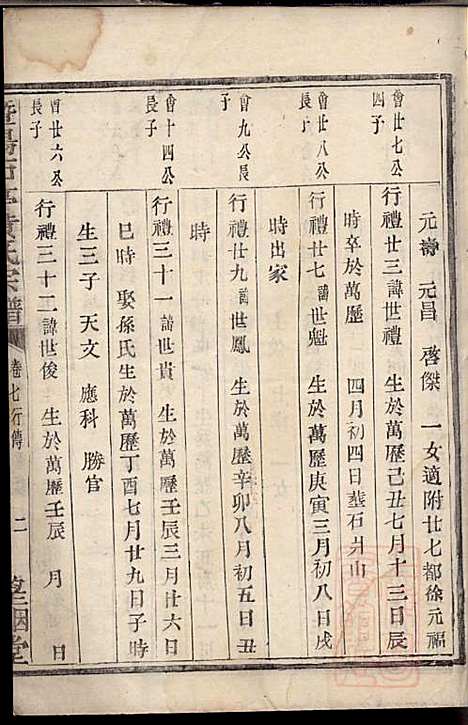 元壽 元昌 啓傑 一女適附廿七都徐元福
會廿七公四子
行禮廿三諱世禮 生於萬曆己丑七月十三日辰
時卒於萬曆 四月初四日葬石井山
會廿八公長子
行禮廿七諱世魁 生於萬曆庚寅三月初八日戌
時出家
會九公長子
行禮廿九諱世鳳 生於萬曆辛卯八月初五日丑
時
會十四公長子
行禮三十一諱世貴 生於萬曆壬辰三月廿六日
巳時 娶孫氏生於萬曆丁酉七月廿九日子時
生三子 天文 應科 勝官
會廿六公長子
行禮三十二諱世俊 生於萬曆壬辰 月 日
黃氏宗譜 卷七行傳 二